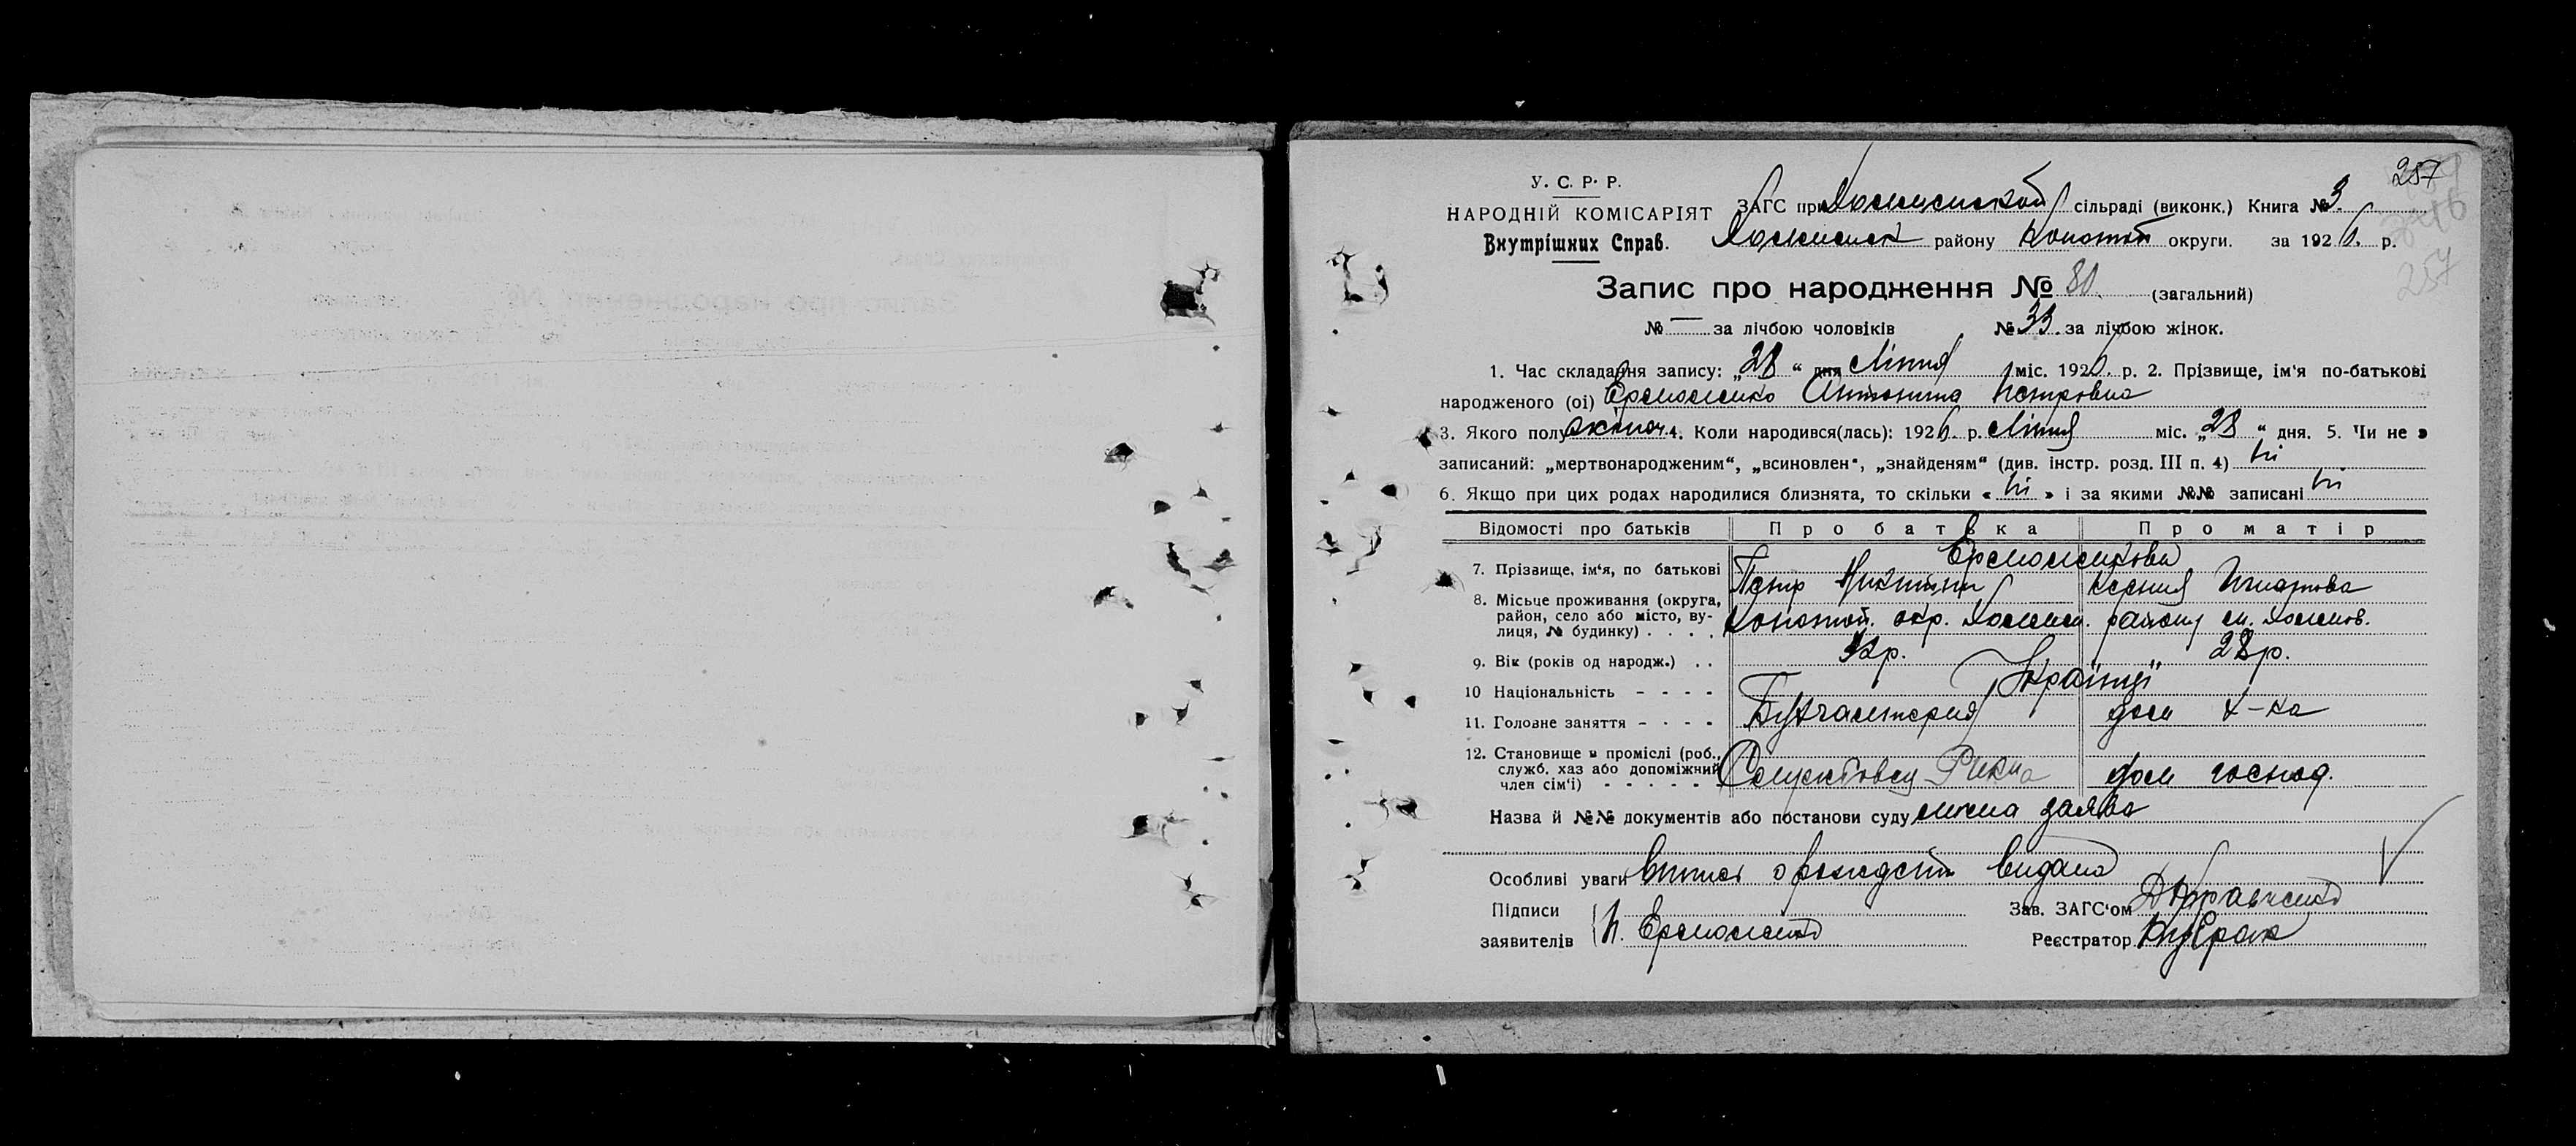 257
У. С. Р. Р.
НАРОДНІЙ КОМІСАРІЯТ
Внутрішних Справ.
ЗАГС при сільраді (виконк.) Книга № 3.
району Конотоп округи. за 1926. р.
257
Запис про народження № 80 (загальний)
№ — за лічбою чоловіків № 33. за лічбою жінок.
1. Час складання запису: „28“ дня Липня міс. 1926. р. 2. Прізвище, ім‘я по-батькові
народженого (ої) Ермоленко Антонина Петровна
3. Якого полу жіноч. 4. Коли народився(лась): 1926. р. Липня міс. „28“ дня. 5. Чи не є
записаний: „мертвонародженим“, „всиновлен“, „знайденям“ (див. інстр. розд. III п. 4) ні
6. Якщо при цих родах народилися близнята, то скільки « ні » і за якими №№ записані ні
Відомості про батьків Про батька Про матір
Ермоленкови
7. Прізвище, ім‘я, по батькові Петр Никитин Ксения Игнатова
8. Місьце проживання (округа,
район, село або місто, ву-
лиця, № будинку) . . . . Конотоп. окр. району
9. Вік (років од народж.) . . 32р. 28р.
10 Національність - - - - Українці
11. Головне заняття - - - - Бухгалтерия дом х-ка
12. Становище в проміслі (роб.,
служб. хаз або допоміжний
член сім‘ї) - - - - - Службовец дом господ.
Назва й №№ документів або постанови суду лична заява
Особливі уваги випис о рождении видана
Підписи
заявителів П. Ермоленко
Зав. ЗАГС‘ом ДКравченко
Реєстратор